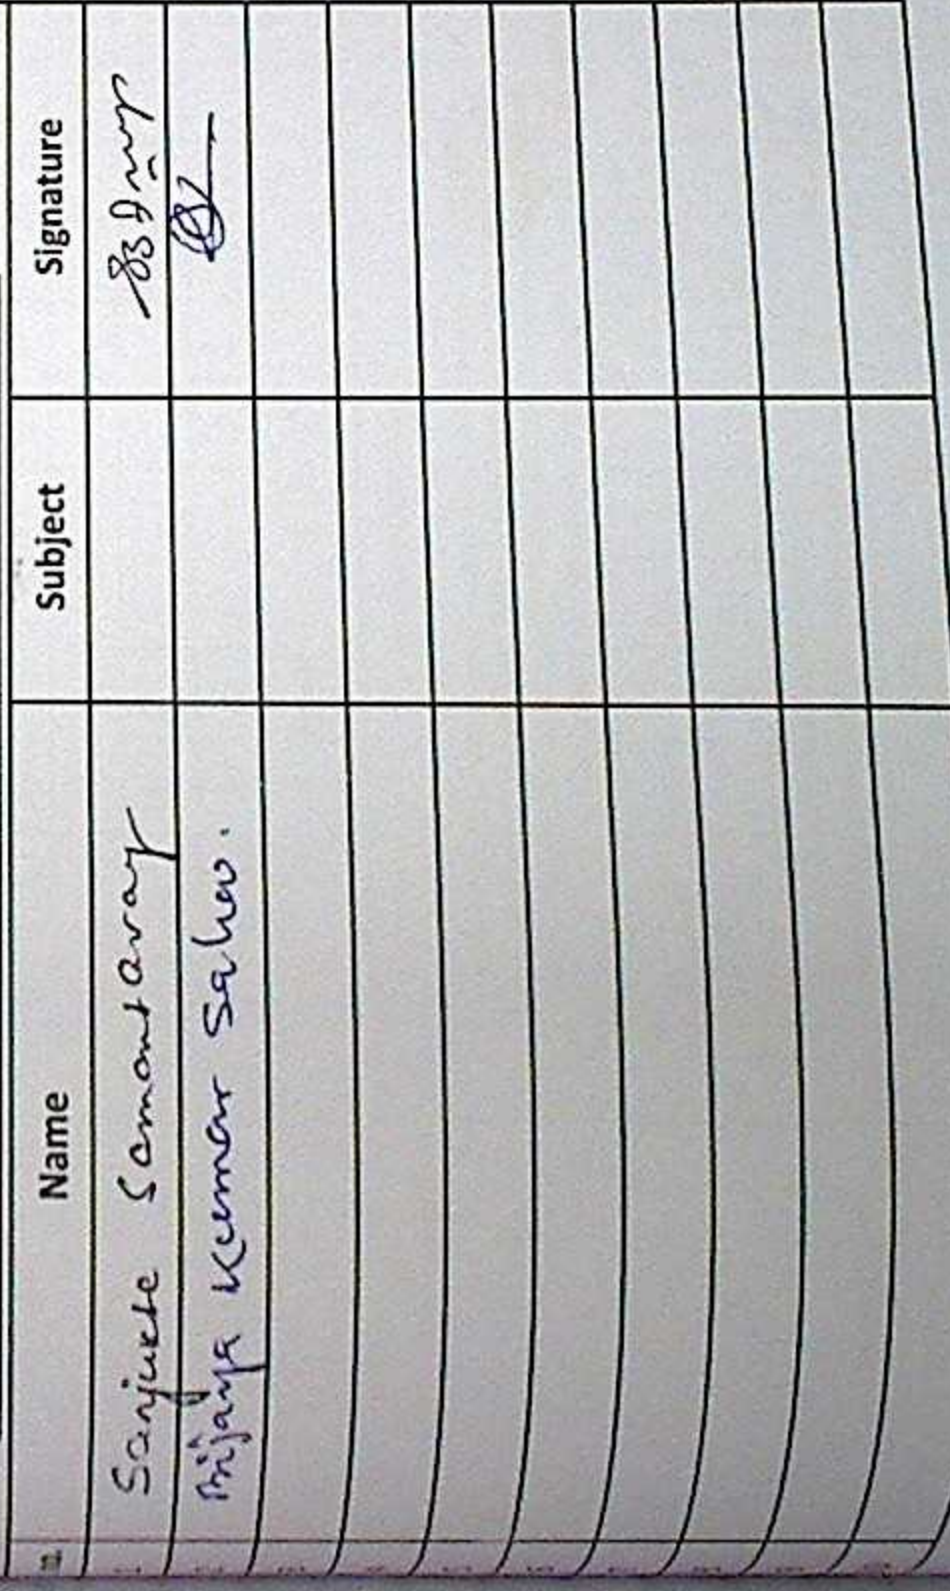 Name Subject Signature
Sanjukta Samantaray
Bijaya Kumar Sahoo.